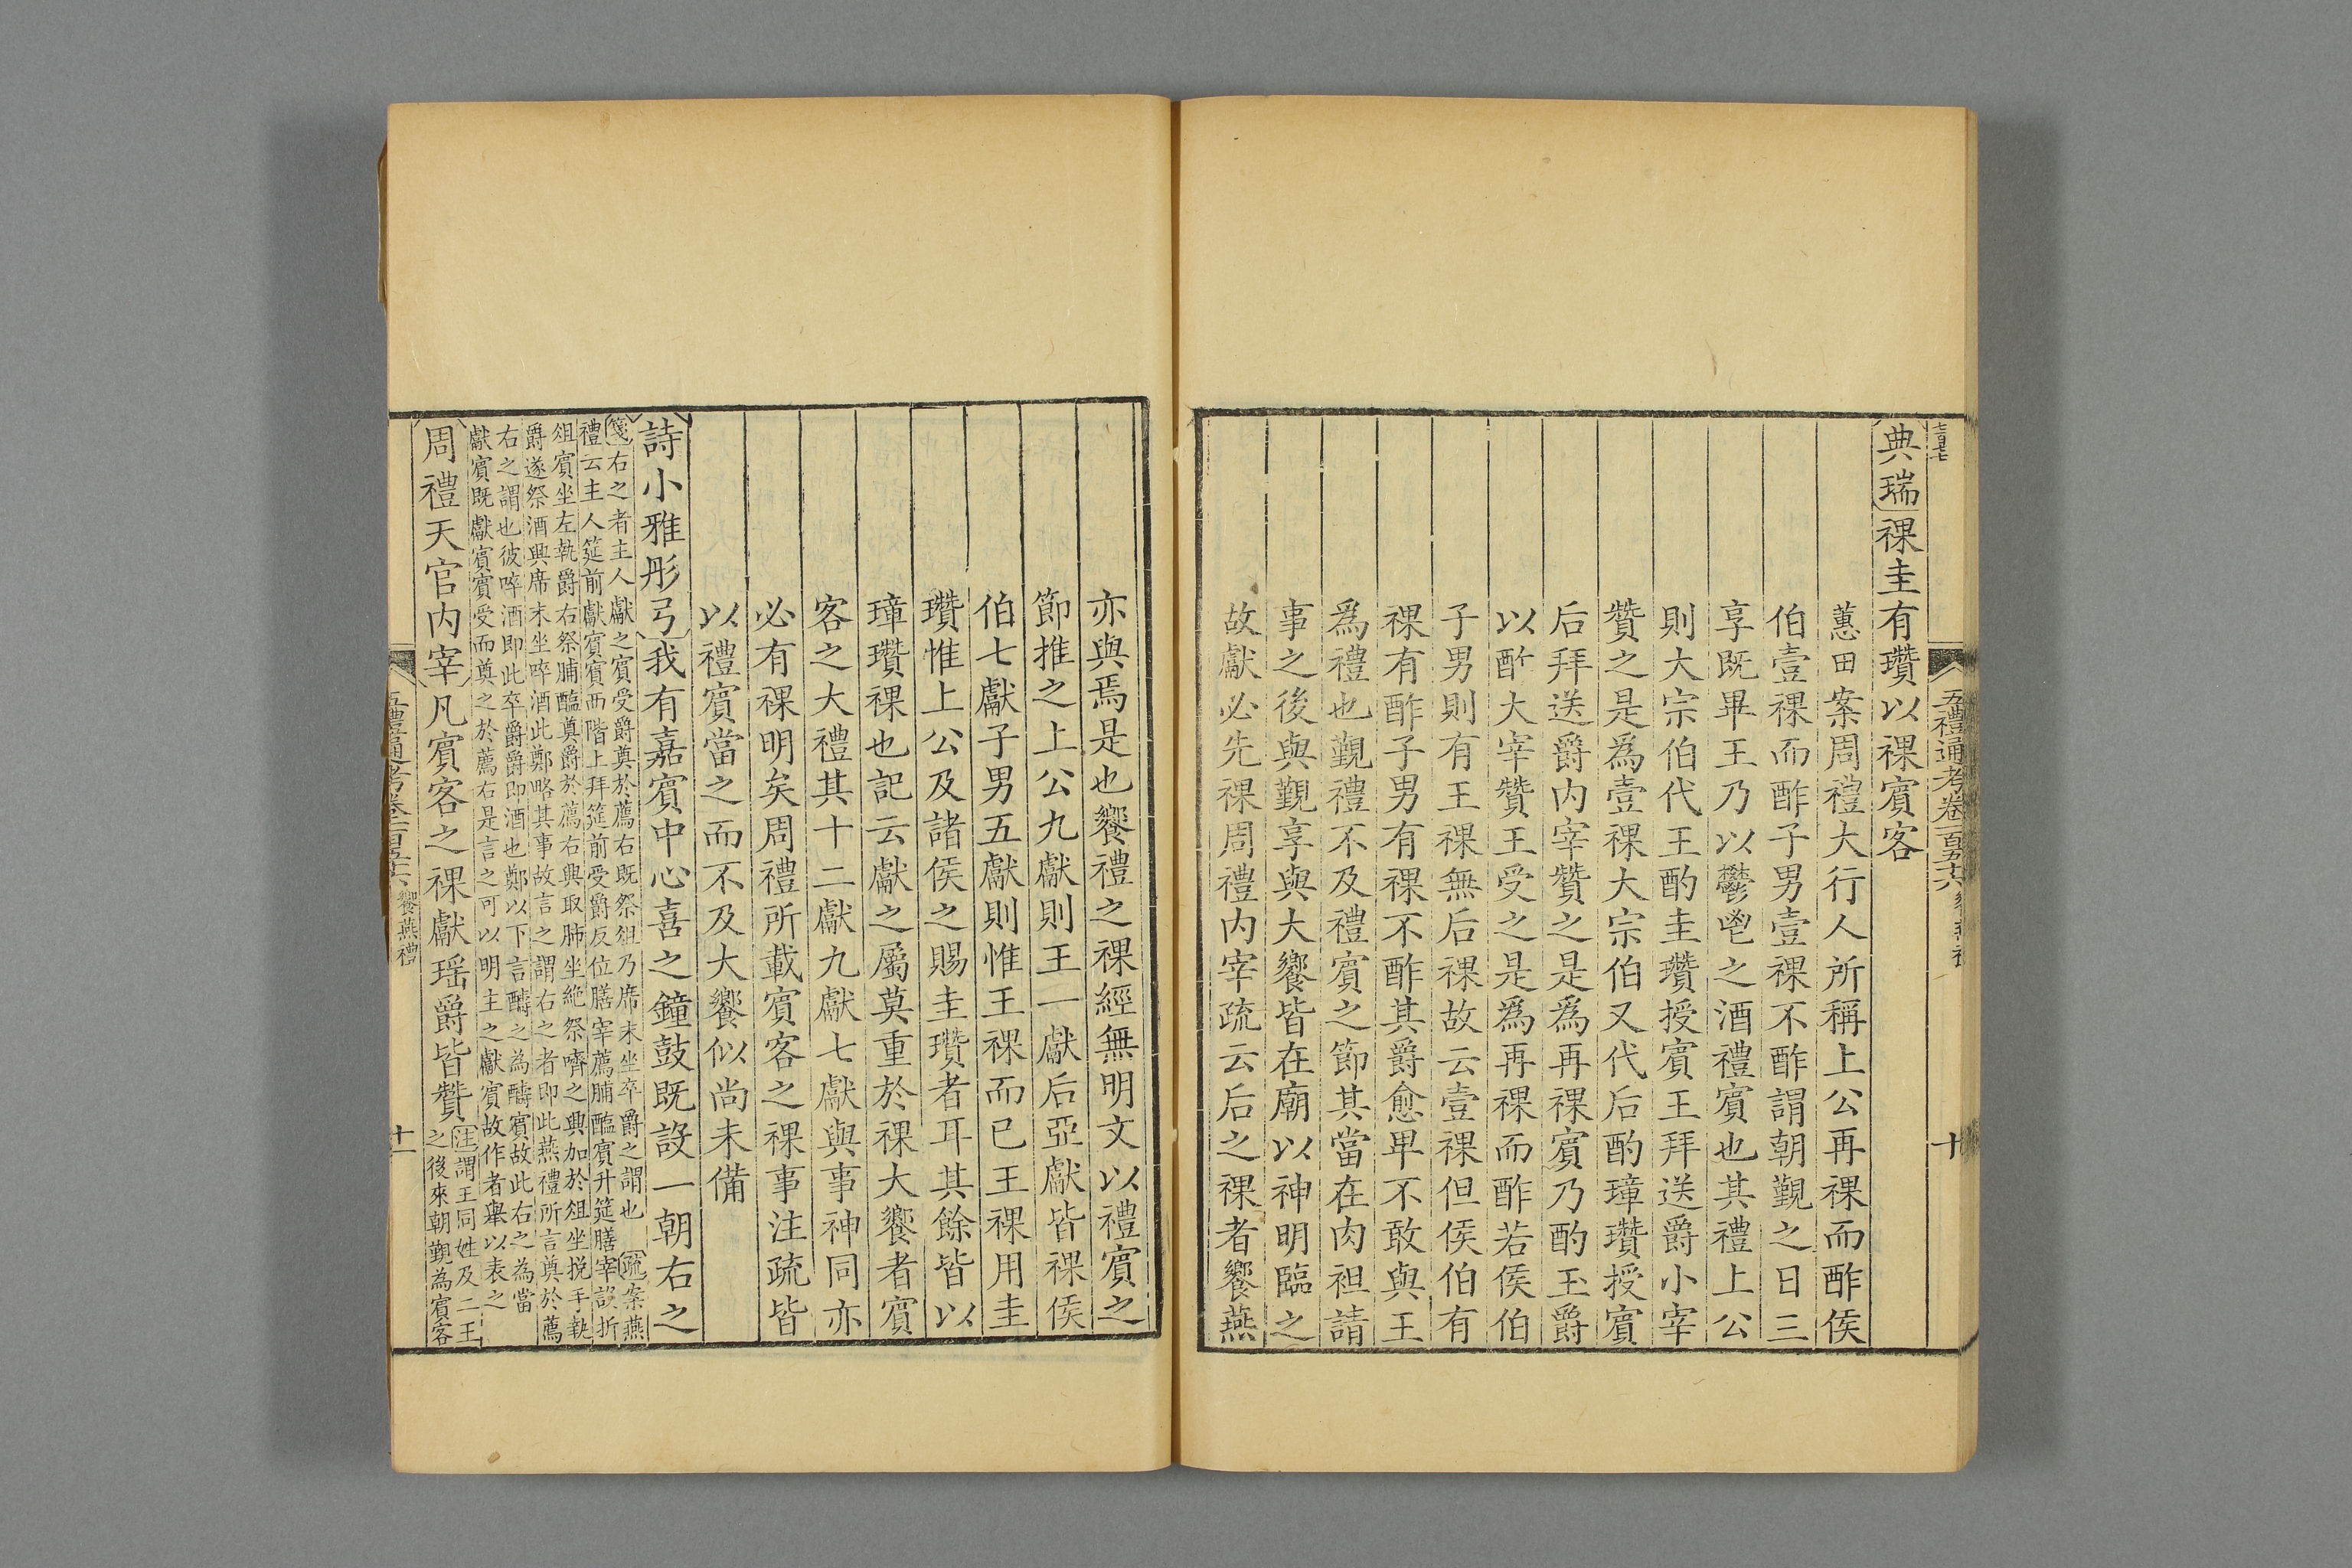 五禮通考卷一百五十六
十
典瑞祼圭有瓚以祼賓客
蕙田案周禮大行人所稱上公再祼而酢侯
伯壹祼而酢子男壹祼不酢謂朝覲之日三
享既畢王乃以鬱鬯之酒禮賓也其禮上公
則大宗伯代王酌圭瓚授賓王拜送爵小宰
贊之是爲壹祼大宗伯又代后酌璋瓚授賓
后拜送爵内宰贊之是爲再祼賓乃酌玉爵
以酢大宰贊王受之是爲再祼而酢若侯伯
子男則有王祼無后祼故云壹祼但侯伯有
祼有酢子男有祼不酢其爵愈卑不敢與王
爲禮也覲禮不及禮賓之節其當在肉袒請
事之後與覲享與大饗皆在廟以神明臨之
故獻必先祼周禮内宰疏云后之祼者饗燕
亦與焉是也饗禮之祼經無明文以禮賓之
節推之上公九獻則王一獻后亞獻皆祼侯
伯七獻子男五獻則惟王祼而已王祼用圭
瓚惟上公及諸侯之賜圭瓚者耳其餘皆以
璋瓚祼也記云獻之屬莫重於祼大饗者賓
客之大禮其十二獻九獻七獻與事神同亦
必有祼明矣周禮所載賓客之祼事注疏皆
以禮賓當之而不及大饗似尚未備
詩小雅彤弓我有嘉賓中心喜之鐘鼓既設一朝右之
箋右之者主人獻之賓受爵奠於薦右既祭俎乃席末坐卒爵之謂也 疏案燕
禮云主人筵前獻賓賓西階上拜筵前受爵反位膳宰薦脯醢賓升筵膳宰設折
俎賓坐左執爵右祭脯醢奠爵於薦右興取肺坐絶祭嚌之興加於俎坐捝手執
爵遂祭酒興席末坐啐酒此鄭略其事故言之謂右之者即此燕禮所言奠於薦
右之謂也彼啐酒即此卒爵爵即酒也鄭以下言醻之為醻賓故此右之為當
獻賓既獻賓賓受而奠之於薦右是言之可以明主之獻賓故作者舉以表之
周禮天官内宰凡賓客之祼獻瑶爵皆贊注謂王同姓及二王
之後來朝覲為賓客
五禮通考卷一百五十六 饗燕禮
十一